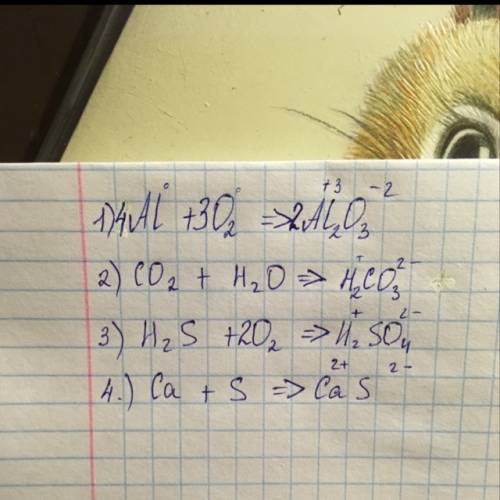 1) 4Al⁰ + 3O₂⁰ => 2Al₂⁺³O₃⁻²
2) CO₂ + H₂O => H₂⁺CO₃²⁻
3) H₂S + 2O₂ => H₂⁺SO₄²⁻
4.) Ca + S => Ca²⁺S²⁻